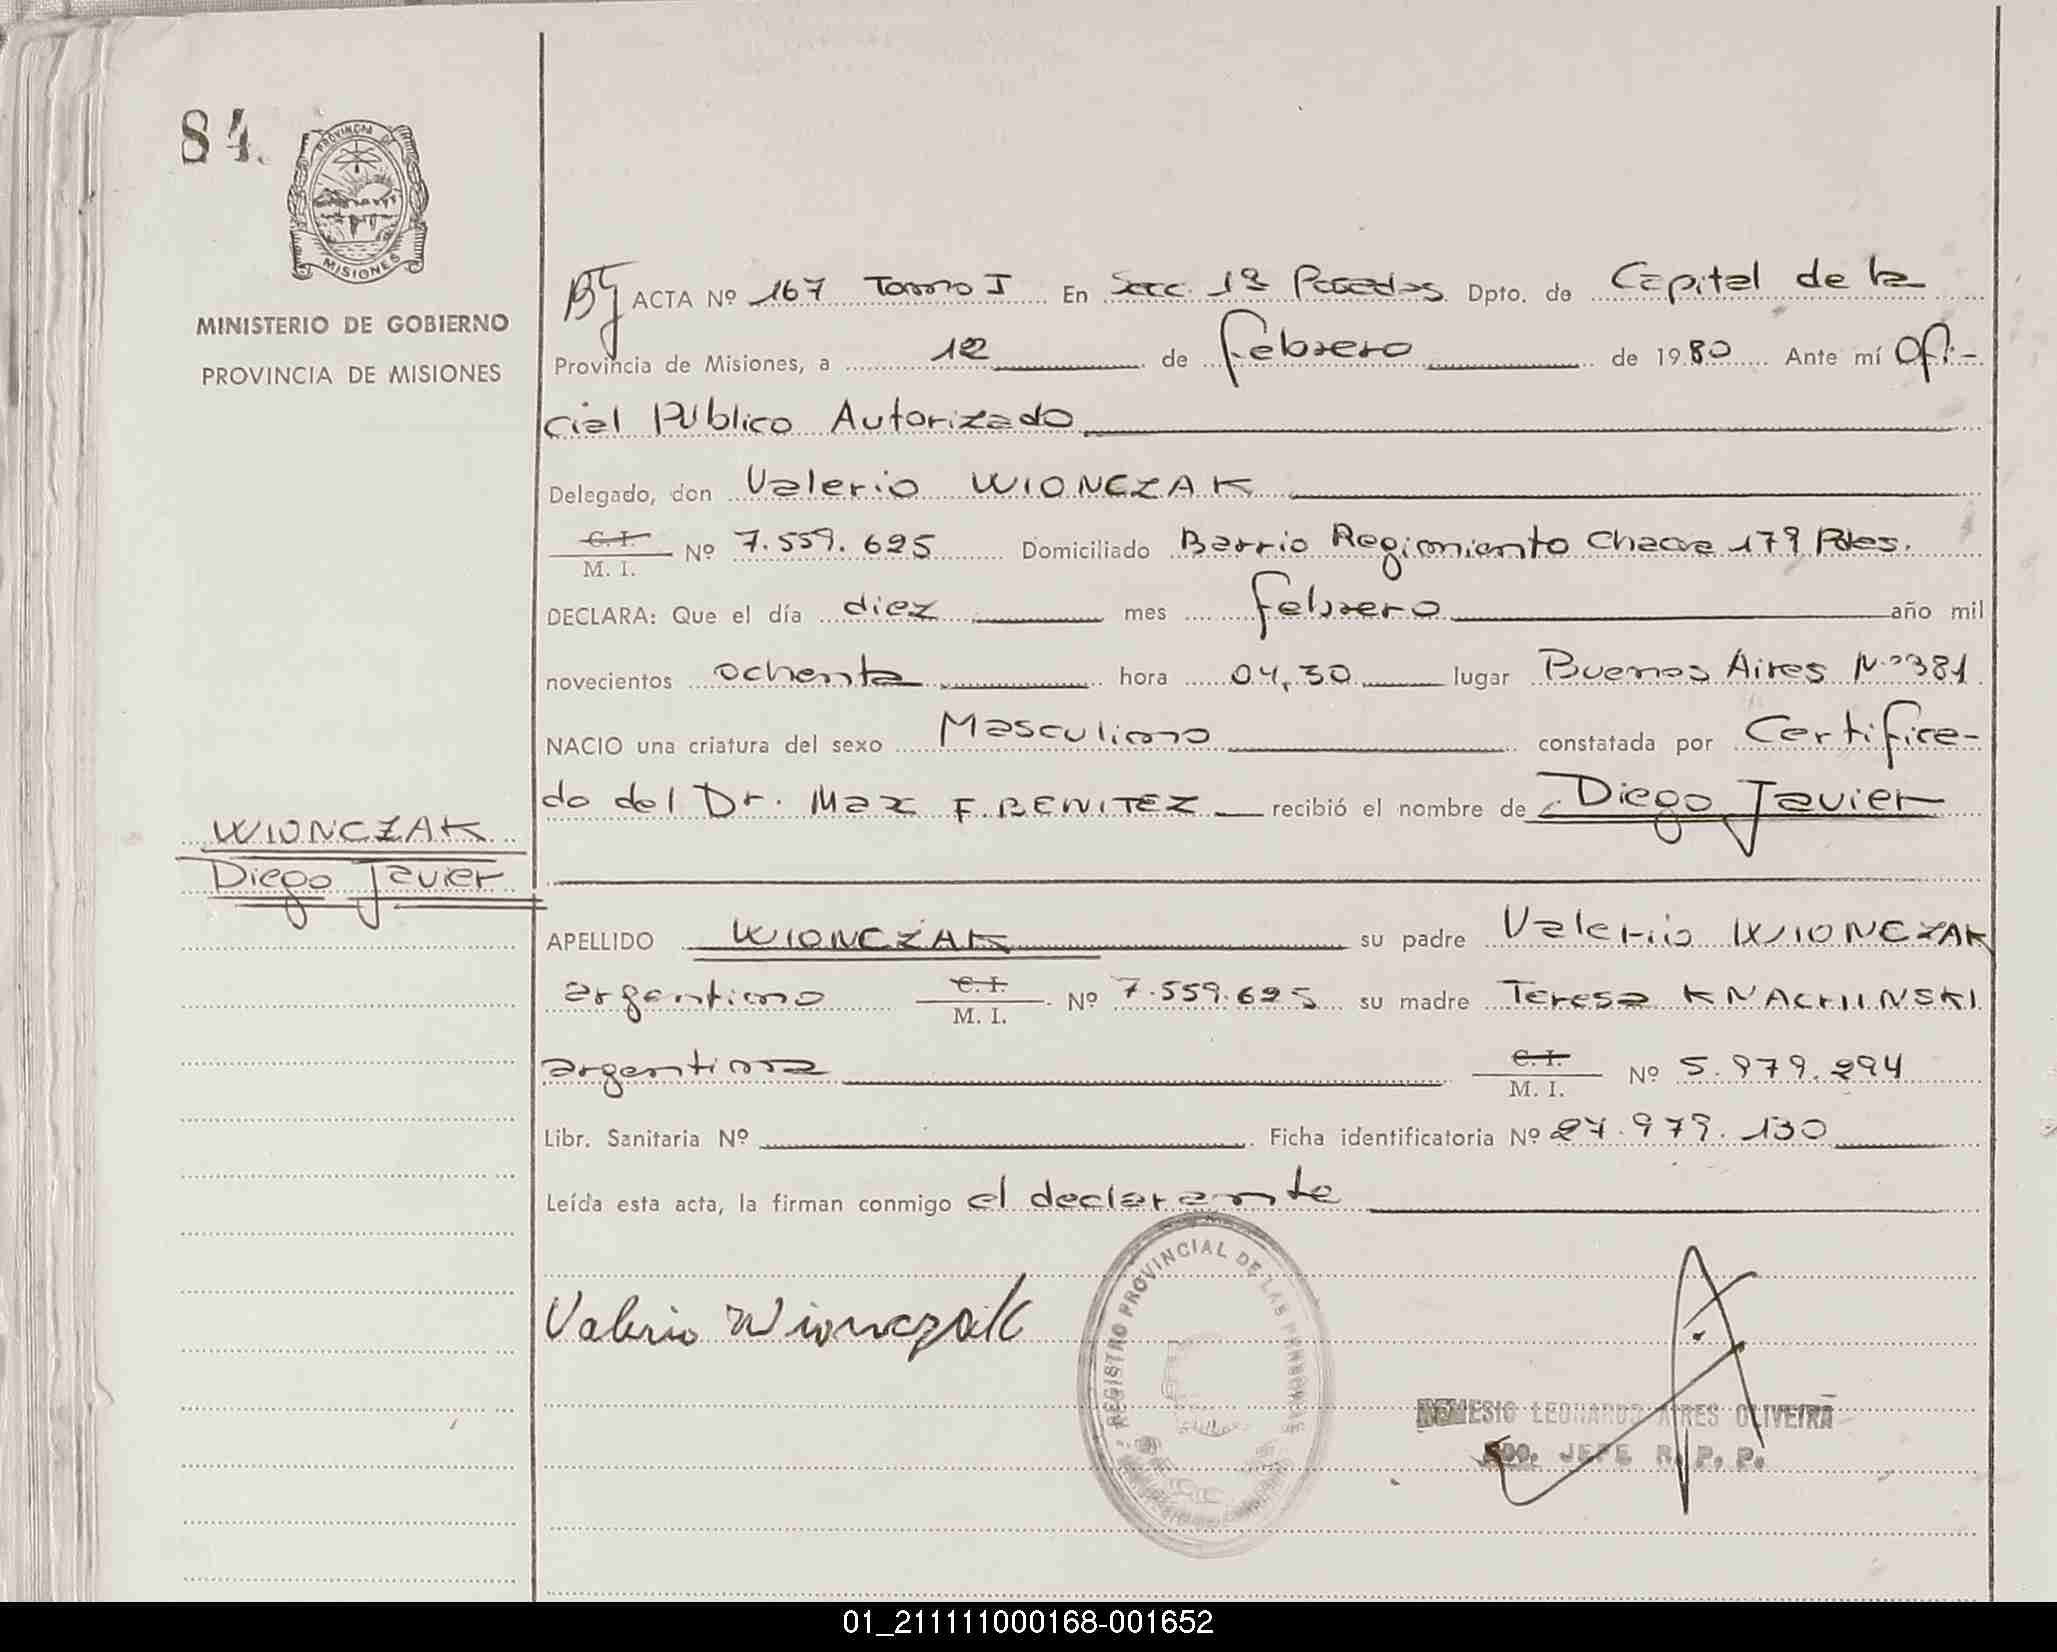 84.
PROVINCIA DE
MISIONES
MINISTERIO DE GOBIERNO
PROVINCIA DE MISIONES
ACTA Nº 167 Tomo I En Secc. 1ª Posadas Dpto. de Capital de la
Provincia de Misiones, a 12 de febrero de 1980 Ante mí Ofi-
cial Público Autorizado
Delegado, don Valerio WIONCZAK
C. I.
M. I. Nº 7.559.695 Domiciliado Barrio Regimiento Chacra 179 Pdas.
DECLARA: Que el día diez mes febrero año mil
novecientos ochenta hora 04,30 lugar Buenos Aires Nº 381
NACIO una criatura del sexo Masculino constatada por Certifica-
do del Dr. Max F. BENITEZ recibió el nombre de Diego Javier
WIONCZAK
Diego Javier
APELLIDO WIONCZAK su padre Valerio WIONCZAK
argentino C. I. M. I. Nº 7.559.695 su madre Teresa KNACHINSKI
argentina C. I. M. I. Nº 5.979.294
Libr. Sanitaria Nº Ficha identificatoria Nº 27.979.130
Leída esta acta, la firman conmigo el declarante
Valerio Wionczak
REGISTRO PROVINCIAL DE LAS PERSONAS
NEMESIO LEONARDO AIRES OLIVEIRA
2DO. JEFE R. P. P.
01_211111000168-001652